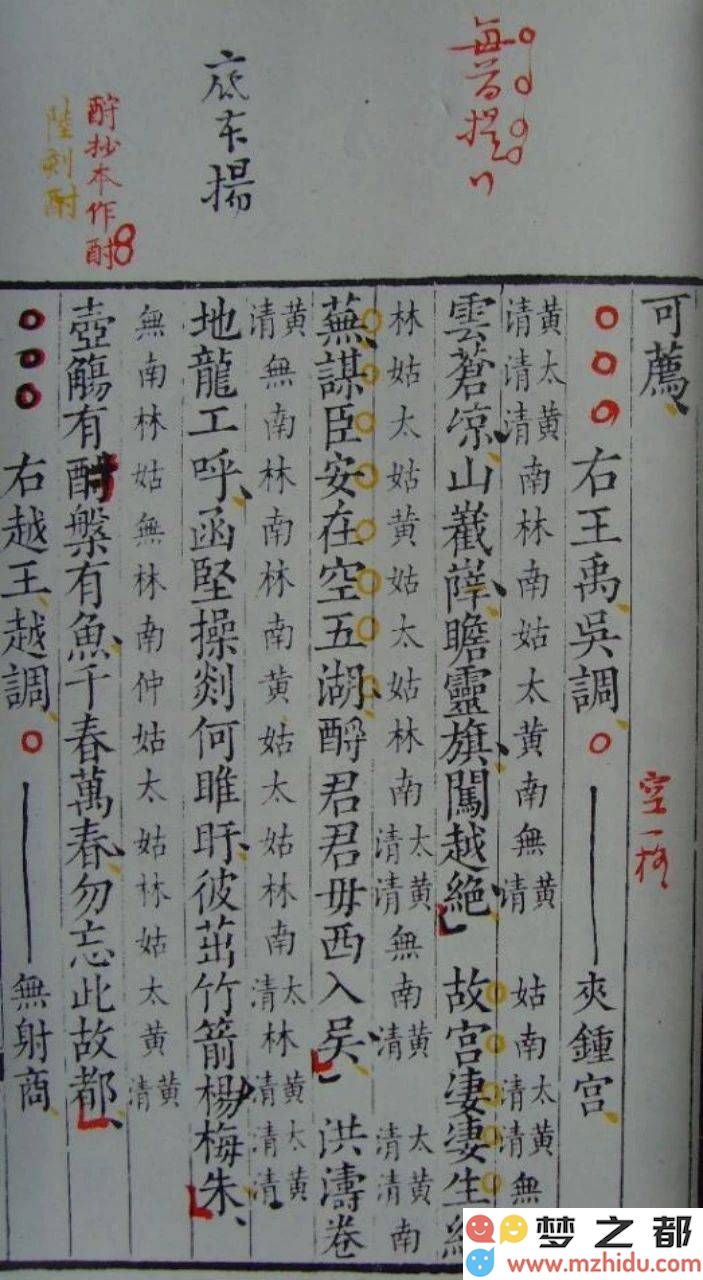 底本揚
抄本作酎
陸刻酎
可薦
右王禹吳調 夾鍾宮
空一格
黃清太清黃清南林南姑太黃南無黃清 姑南太清黃清無
雲蒼凉山嶻嶭瞻靈旗闖越絕 故宮淒淒生綠
林姑太姑黃姑太姑林南太清黃清無南黃清 太清黃清南
蕪謀臣安在空五湖酹君君毋西入吳 洪濤卷
黃清無南林南南黃姑太姑林南太清林黃清太清黃清
地龍工呼函堅操剡何睢盱彼茁竹箭楊梅朱
無南林姑無林南仲姑太姑林姑太黃黃清
壺觴有酎槃有魚千春萬春勿忘此故都
右越王越調 無射商
梦之都
www.mzhidu.com